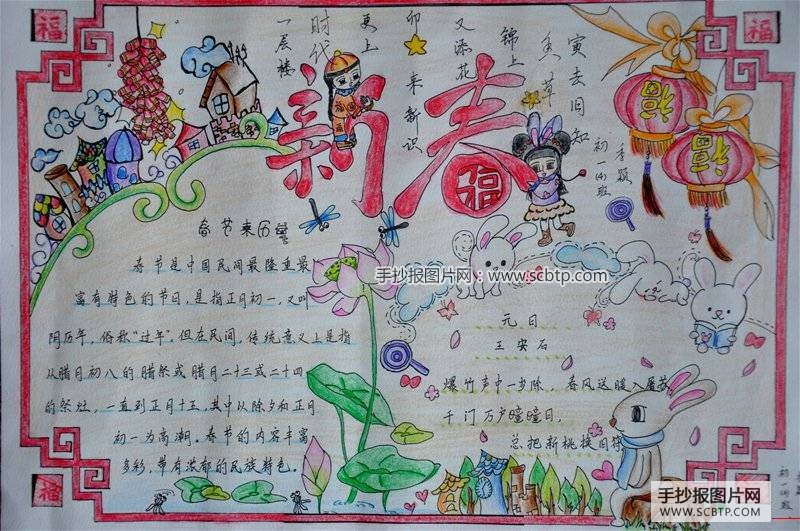 福
福
寅去旧知
锦上
又添花
卯来新识
更上
时代
一层楼
新春
福
福
福
初一(4)班
春节来历
春节是中国民间最隆重最
富有特色的节日，是指正月初一，又叫
阴历年，俗称“过年”。但在民间，传统意义上是指
从腊月初八的腊祭或腊月二十三或二十四
的祭灶，一直到正月十五，其中以除夕和正月
初一为高潮。春节的内容丰富
多彩，带有浓郁的民族特色。
手抄报图片网：www.scbtp.com
元日
王安石
爆竹声中一岁除，春风送暖入屠苏
千门万户曈曈日，
总把新桃换旧符
福
手抄报图片网
WWW.SCBTP.COM